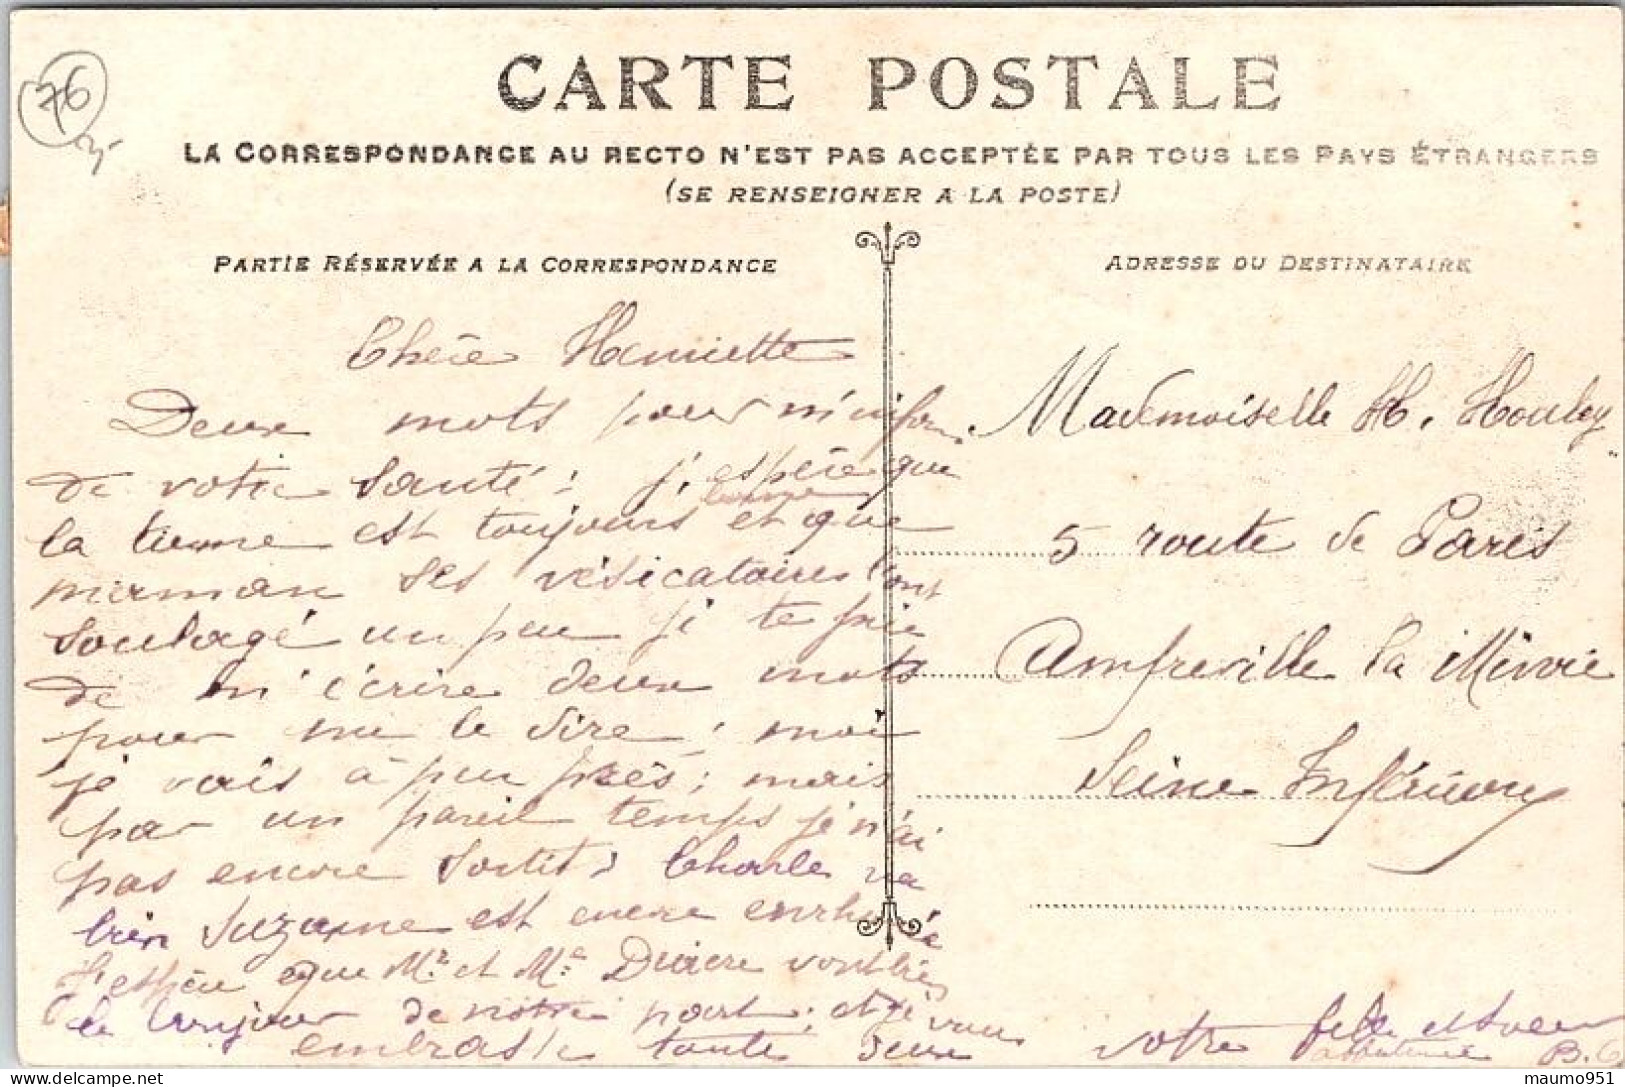 76
CARTE POSTALE
LA CORRESPONDANCE AU RECTO N'EST PAS ACCEPTÉE PAR TOUS LES PAYS ÉTRANGERS
(SE RENSEIGNER A LA POSTE)
PARTIE RÉSERVÉE A LA CORRESPONDANCE
Chère Henriette
Deux mots pour m'infor
de votre santé ; j'espère que
la tienne est toujours bonne et que
mérman ses vésicatoires l'ont
soulagé un peu je te prie
de m'écrire deux mots
pour me le dire ; moi
je vais à peu près ; mais
par un pareil temps je n'ai
pas encore sortit ; Charle va
bien Suzanne est encore enrhu
J'espère que Mr et Me vont bien
le bonjour de notre part ; et je vous
embrasse toute deux
ADRESSE DU DESTINATAIRE
Mademoiselle H. Houley
5 route de Paris
Amfreville la Mivoie
Seine Inférieure
votre fille et soeur
B. C
maumo951